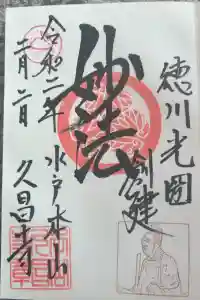 徳川光圀
創建
妙法
水戸
久昌寺
令和二年
二月二日